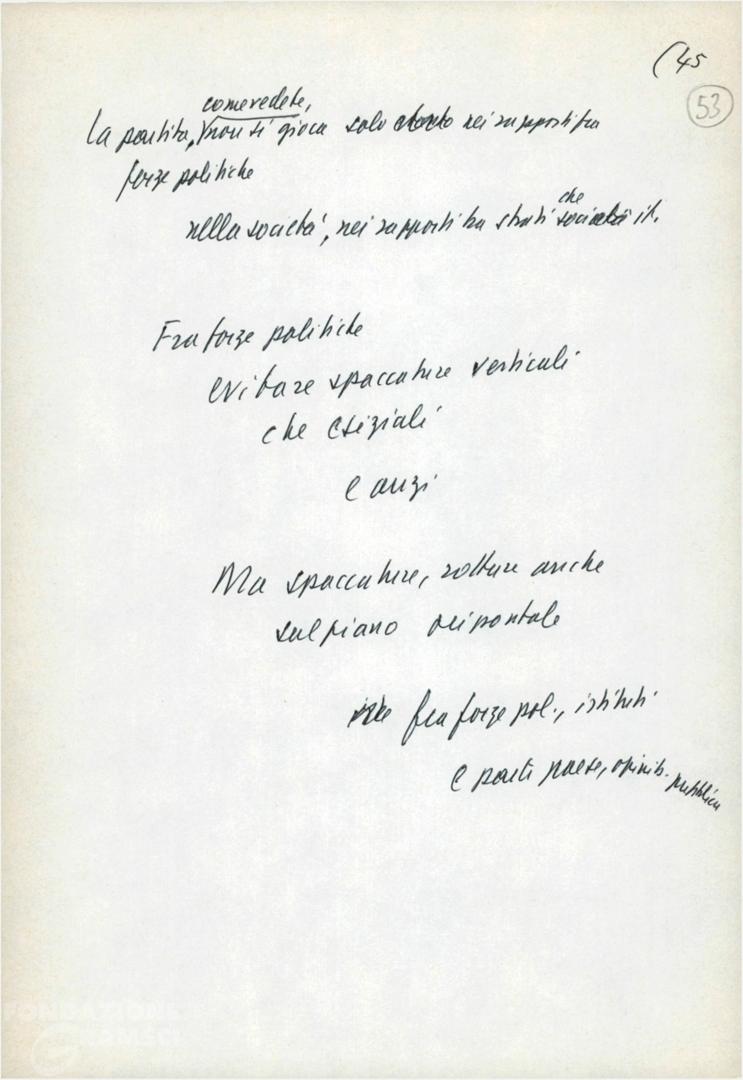 (45
53
come vedete,
La partita, non si gioca solo nei rapporti fra
forze politiche
che
nella società, nei rapporti tra strati it.
Fra forze politiche
evitare spaccature verticali
che esiziali
e anzi
Ma spaccature, rotture anche
sul piano orizzontale
fra forze pol., istituti
e parti paese, opinio. pubblica
FONDAZIONE
GRAMSCI